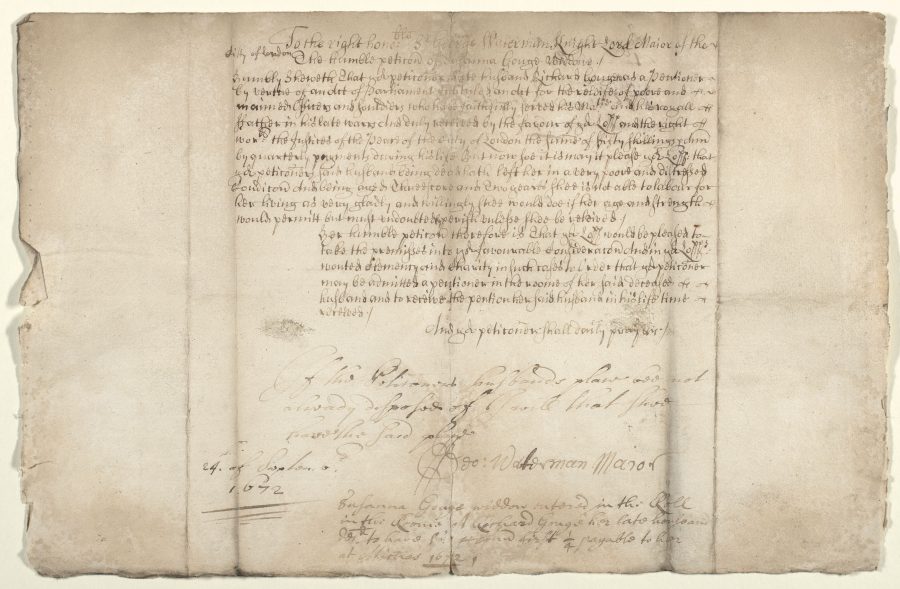 To the right honoble Sr George Waterman Knight Lord Maior of the
Citty of London
The humble peticon of Susanna Gouge Widdow /
Humbly Sheweth That yor petitioner late husband Richard Gouge was a Pentioner
by vertue of an Act of Parliament in that Case for the releife of poore and
maimed Officers and Souldiers who have faithfully served his Matie and his royall
ffather in his late warrs And duly received by the favour of yor Lopp and the right
worll the Justices of the Peace of the Citty of London the sume of fifty shillings p Ann
by quarterly payments during his life But now soe it is may it please yor Lopp that
yor peticoners said husband being dead hath left her in a very poore and distressed
Condicon And being aged threescore and two yeares shee is not able to labour for
her living as very gladly and willingly shee would doe if her age and strength
would permitt but must undoubtedly perish unless shee be releived /
Her humble peticon therefore is That yor Lopp would be pleased to
take the premisses into yor favourable Consideracon And in yor Lopps
wonted Clemency and Charity in such cases to Order that yor peticoner
may be admitted a pentioner in the roome of her said deceased
husband and to receive the pention her said husband in his life time
received /
And yor peticoner shall daily pray &c /
If the Peticoners husbands place bee not
already disposed of I will that shee
have the said place
Geo: Waterman Maior
24th of Septem:
1672
Susanna Gouge widdow entered in the Roll
in the Roome of Richard Gouge her late husband
decd to have his pencon first 1/4 payable to her
at Miches 1672